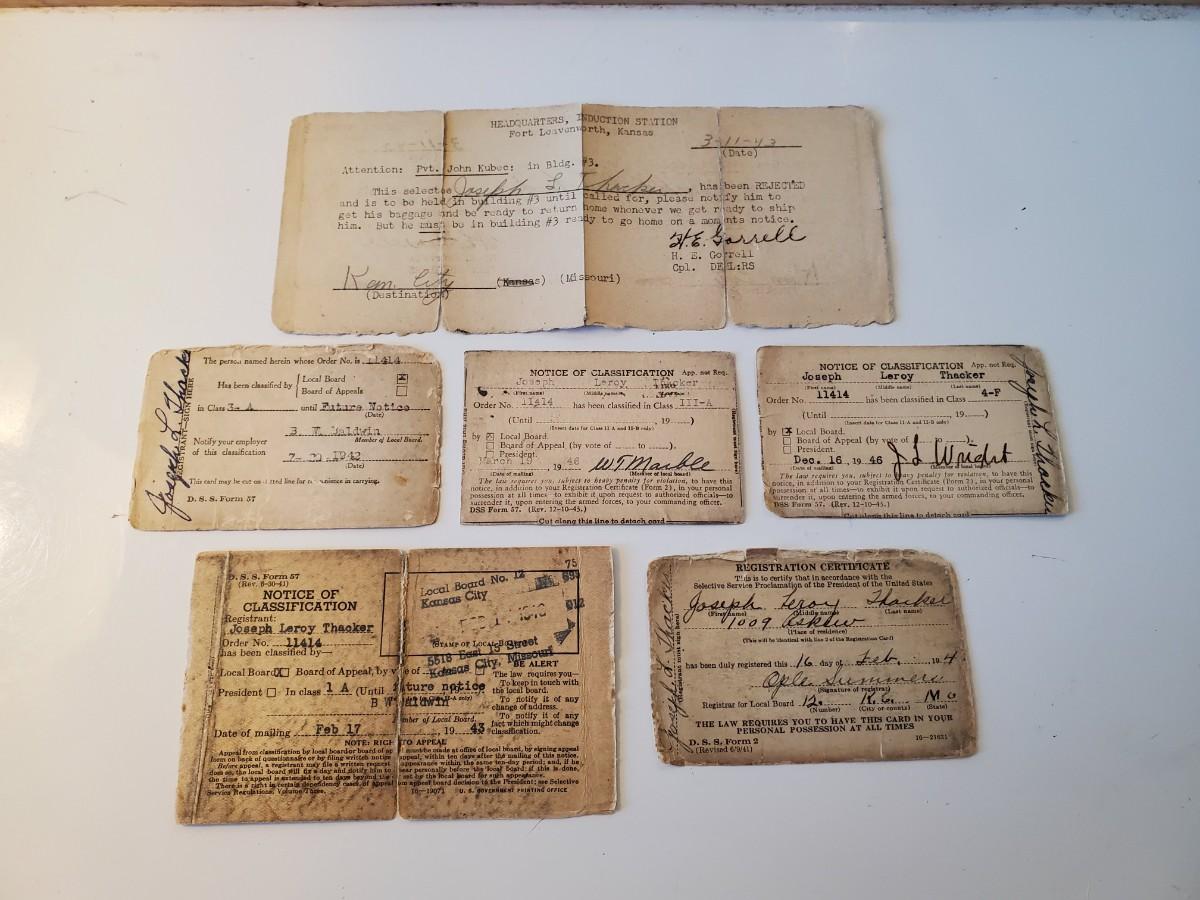 HEADQUARTERS, INDUCTION STATION
Fort Leavenworth, Kansas
3-11-43
(Date)
Attention: Pvt. John Kubec: in Bldg. #3.
This selectee Joseph L. Thacker, has been REJECTED
and is to be held in building #3 until called for, please notify him to
get his baggage and be ready to return home whenever we get ready to ship
him. But he must be in building #3 ready to go home on a moments notice.
H.E. Gorrell
H. E. Gorrell
Cpl. DEML:RS
Kan. City (Kansas) (Missouri)
(Destination)
The person named herein whose Order No. is 11414
Has been classified by Local Board
Board of Appeals
in Class 3-A until Future Notice
(Date)
B. W. Baldwin
Member of Local Board.
Notify your employer
of this classification
(Date)
This card may be cut on line for convenience in carrying.
D. S. S. Form 57
Joseph L Thacker
REGISTRANT—SIGN HERE
NOTICE OF CLASSIFICATION App. not Req.
Joseph Leroy Thacker
(First name) (Middle name)
Order No. 11414 has been classified in Class III-A
(Until , 19 )
(Insert date for Class II-A and II-B only)
by ☒ Local Board.
☐ Board of Appeal (by vote of to ).
☐ President.
March 19, 1946 WT Marble
(Date of mailing) (Member of local board)
The law requires you, subject to heavy penalty for violation, to have this
notice, in addition to your Registration Certificate (Form 2), in your personal
possession at all times—to exhibit it upon request to authorized officials—to
surrender it, upon entering the armed forces, to your commanding officer.
DSS Form 57. (Rev. 12-10-45.)
Cut along this line to detach card
NOTICE OF CLASSIFICATION App. not Req.
Joseph Leroy Thacker
(First name) (Middle name) (Last name)
Order No. 11414 has been classified in Class 4-F
(Until , 19 )
(Insert date for Class II-A and II-B only)
by ☒ Local Board.
☐ Board of Appeal (by vote of to ).
☐ President.
Dec. 16, 1946 J L Wright
(Date of mailing) (Member of local board)
The law requires you, subject to heavy penalty for violation, to have this
notice, in addition to your Registration Certificate (Form 2), in your personal
possession at all times—to exhibit it upon request to authorized officials—to
surrender it, upon entering the armed forces, to your commanding officer.
DSS Form 57. (Rev. 12-10-45.)
Cut along this line to detach card
Joseph L Thacker
D. S. S. Form 57
(Rev. 6-30-41)
NOTICE OF
CLASSIFICATION
Registrant:
Joseph Leroy Thacker
Order No. 11414
has been classified by—
Local Board ☒ Board of Appeal, by vote of
President ☐ In class 1 A (Until future notice
B W Baldwin
Member of Local Board.
Date of mailing Feb 17, 1943
NOTE: RIGHT TO APPEAL
Appeal from classification by local board or board of appeal must be made at office of local board, by signing appeal
form on back of questionnaire or by filing written notice of appeal, within ten days after the mailing of this notice.
Before appeal, a registrant may file a written request for appearance within the same ten-day period; and, if he
does so, the local board will fix a day and notify him to appear personally before the local board; if this is done,
the time to appeal is extended to ten days beyond the
There is a right in certain dependency cases of appeal from appeal board decision to the President; see Selective
Service Regulations, Volume Three.
16—19071 U. S. GOVERNMENT PRINTING OFFICE
75
Local Board No. 12
Kansas City
(STAMP OF LOCAL BOARD)
5518 East 15 Street
Kansas City, Missouri
BE ALERT
The law requires you—
To keep in touch with
the local board.
To notify it of any
change of address.
To notify it of any
fact which might change
classification.
REGISTRATION CERTIFICATE
This is to certify that in accordance with the
Selective Service Proclamation of the President of the United States
Joseph Leroy Thacker
(First name) (Middle name) (Last name)
1009 Askew
(Place of residence)
(This will be identical with line 2 of the Registration Card)
has been duly registered this 16 day of Feb., 194
Ople Summers
(Signature of registrar)
Registrar for Local Board 12. K.C. Mo
(Number) (City or county) (State)
THE LAW REQUIRES YOU TO HAVE THIS CARD IN YOUR
PERSONAL POSSESSION AT ALL TIMES
D. S. S. Form 2
(Revised 6/9/41)
16—21631
Joseph L Thacker
(Registrant must sign here)